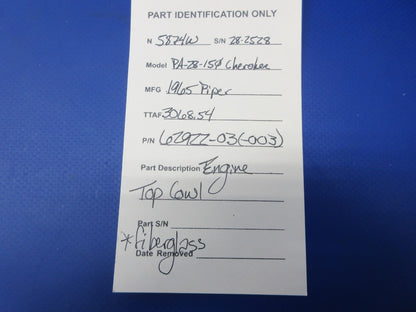 PART IDENTIFICATION ONLY
N 5824W S/N 28-2528
Model PA-28-150 Cherokee
MFG 1965 Piper
TTAF 3068.54
P/N 62922-03(-003)
Part Description Engine
Top Cowl
Part S/N
*fiberglass
Date Removed